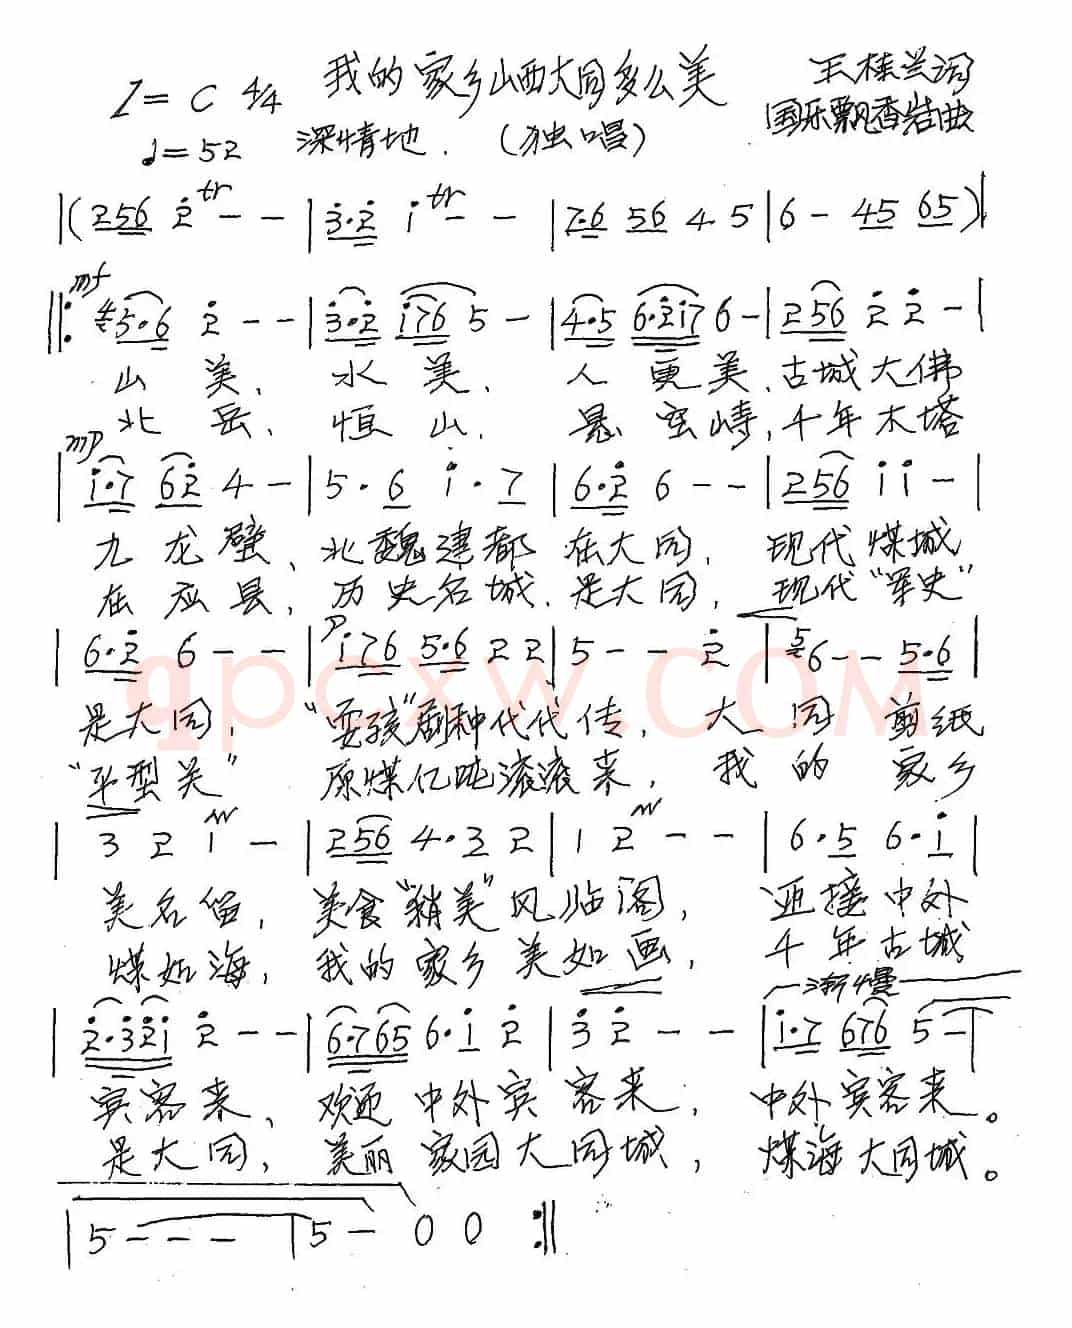 1=C 4/4 我的家乡山西大同多么美 王桂兰词
♩=52 深情地. (独唱) 国乐飘香岩曲
|(256 2 tr - - |3·2 1 tr - - |7·6 56 4 5|6 - 45 65)|
mf
‖: 5·6 2 - - |3·2 176 5 - |4·5 6·217 6 - |256 2 2 - |
山 美、水 美、人 更美、古城大佛
北 岳、恒 山、悬 空寺,千年木塔
mp
|1·7 62 4 - |5·6 1·7 |6·2 6 - - |256 1 1 - |
九龙壁、北魏建都在大同, 现代煤城
在应县, 历史名城、是大同, 现代“军史”
p
|6·2 6 - - |176 5·6 2 2|5 - - 2 |5 6 - - 5·6|
是大同, “耍孩”剧种代代传, 大同剪纸
“平型关” 原煤亿吨滚滚来, 我的家乡
|3 2 1 - |256 4·3 2|1 2 - - |6·5 6·1|
美名留, 美食“稍美”风临阁, 迎接中外
煤如海, 我的家乡美如画, 千年古城
渐慢
|2·321 2 - - |6·765 6·1 2 |3 2 - - |1·7 676 5 - |
宾客来、欢迎中外宾客来, 中外宾客来。
是大同, 美丽家园大同城, 煤海大同城。
|5 - - - |5 - 0 0 :‖
qpcxw.COM